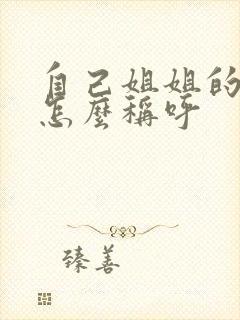 自己姐姐的
怎麼稱呼
臻善